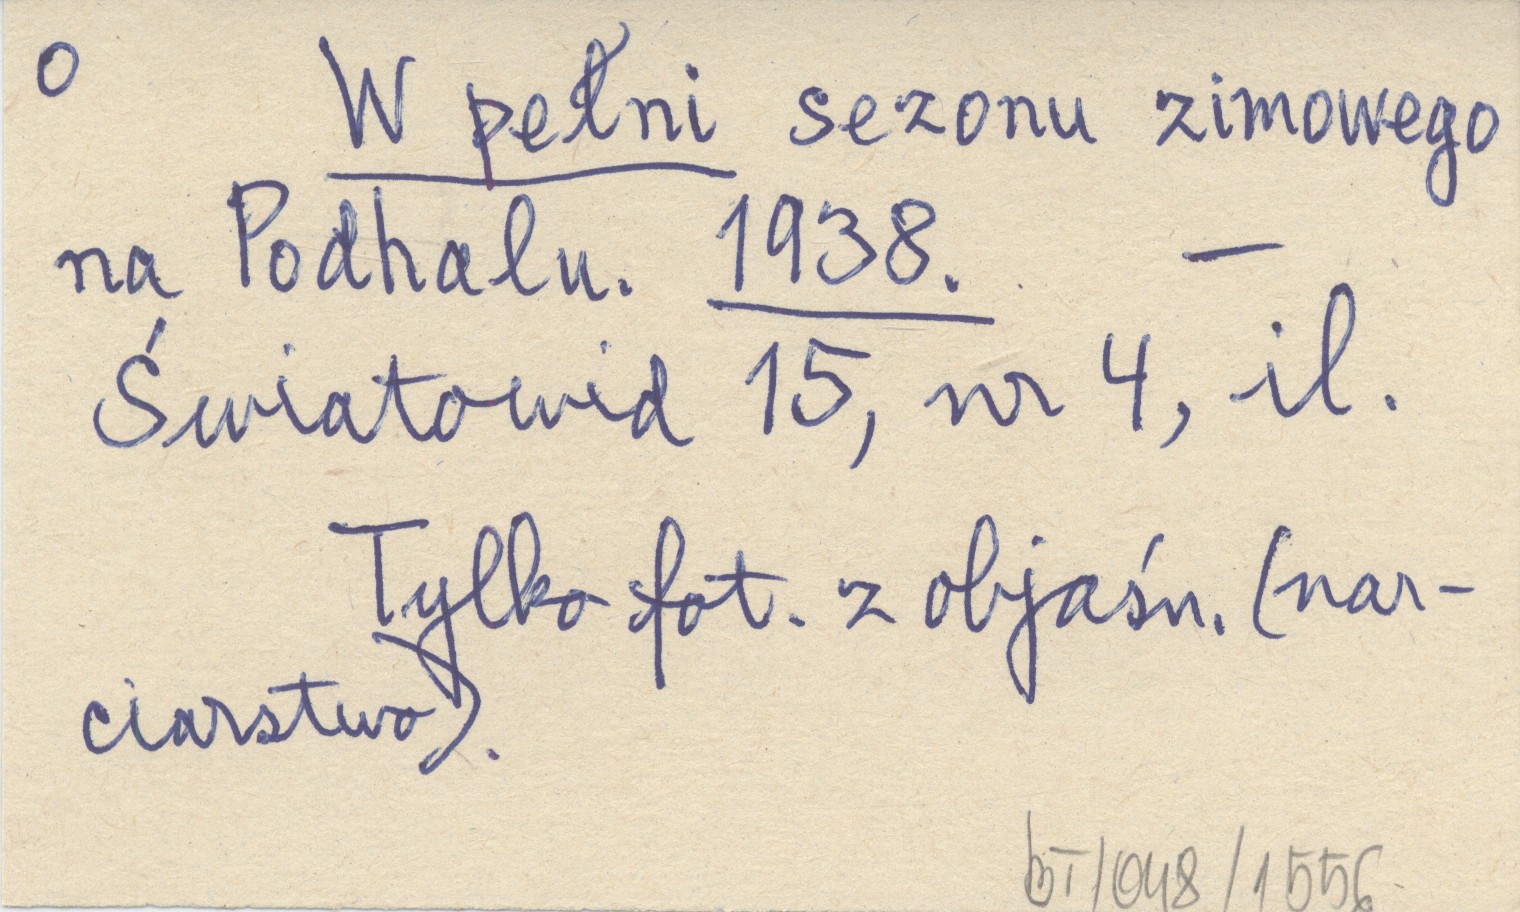 o W pełni sezonu zimowego
na Podhalu. 1938. —
Światowid 15, nr 4, il.
Tylko fot. z objaśn. (nar-
ciarstwo).
bT/048/1556